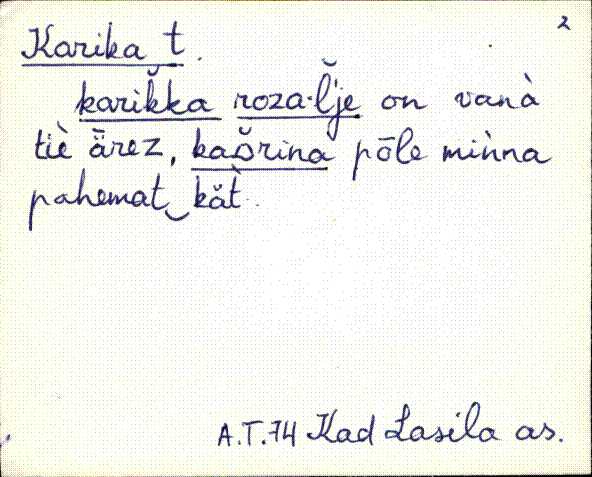 2
Karika t.
karik̆ka roza·l̆'je on vanà
tiè ärez, kaŏrina põle miǹna
pahemat‿kăt.
A.T.74 Kad Lasila as.